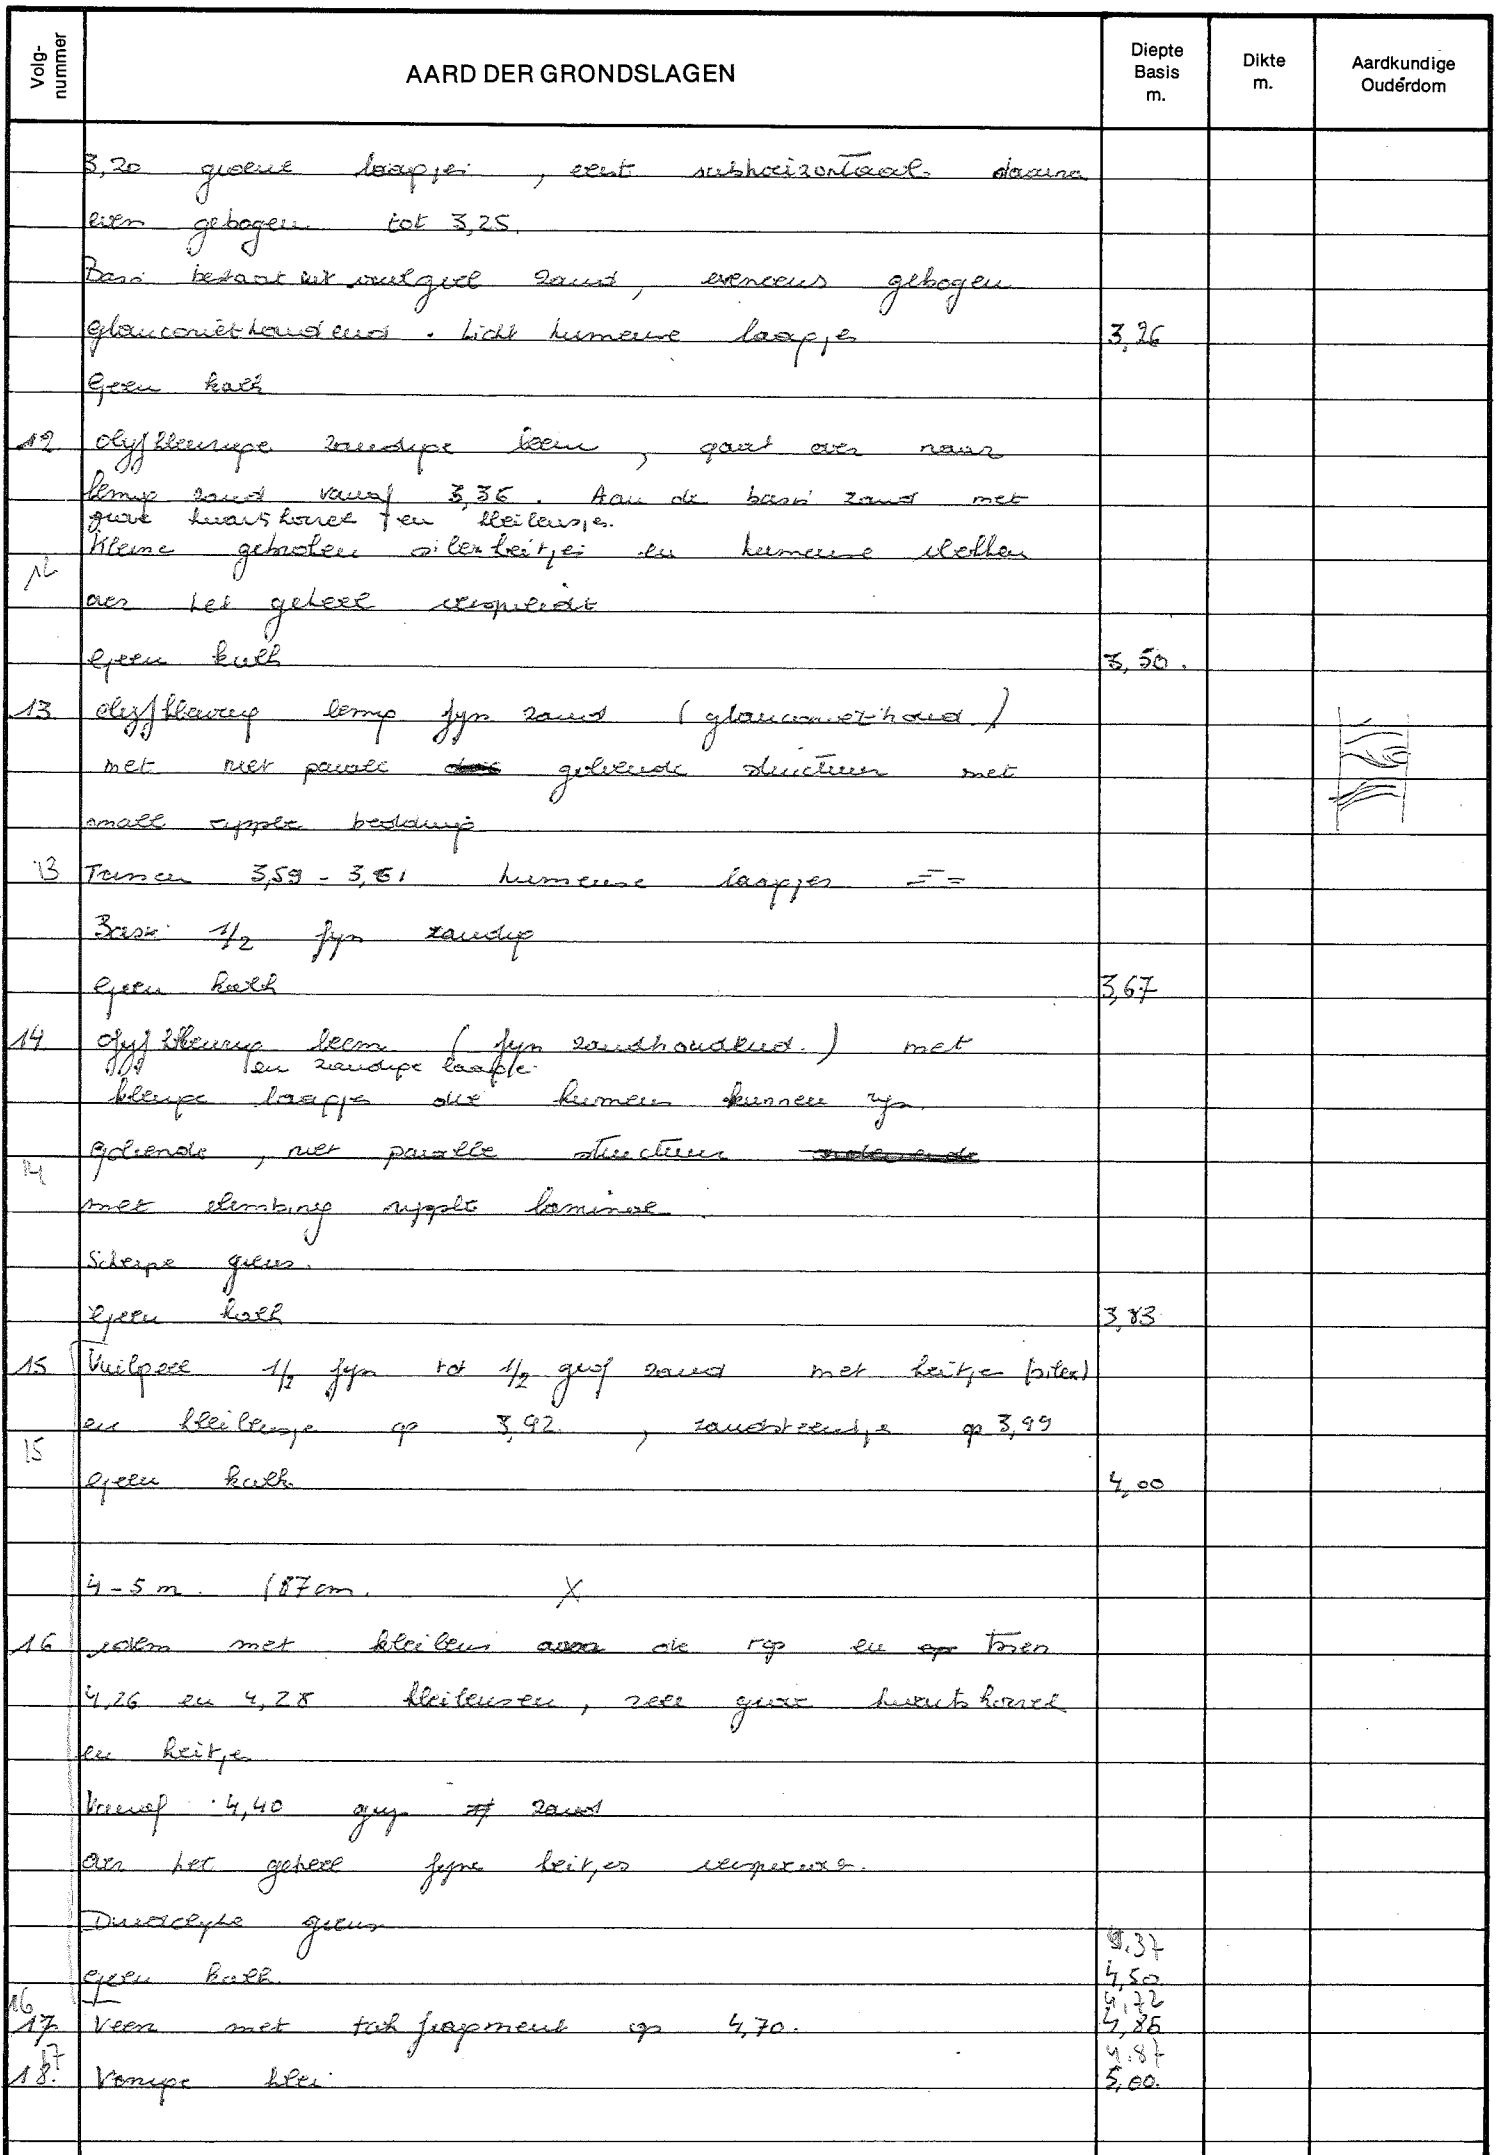 Volg-nummer
AARD DER GRONDSLAGEN
Diepte Basis m.
Dikte m.
Aardkundige Ouderdom
3,20 groene laagjes , eerst subhorizontaal daarna
even gebogen tot 3,25.
Basis bestaat uit vuilgeel zand, eveneens gebogen
glauconiethoudend . Licht humeuze laagjes 3,26
Geen kalk
12 olijfkleurige zandige leem , gaat over naar
lemig zand vanaf 3,36 . Aan de basis zand met
grove kwartskorrel en kleilensjes.
Kleine gebroken silexkeitjes en humeuze vlekken
12
over het geheel verspreidt
Geen kalk 3,50.
13 olijfkleurig lemig fijn zand (glauconiethoud.)
met niet parall golvende structuur met
small ripple bedding
13 Tussen 3,59 - 3,61 humeuse laagjes
Basis 1/2 fijn zandig
Geen kalk 3,67
14 Olijfkleurig leem (fijn zandhoudend.) met
en zandige laagje
kleiige laagje die humeus kunnen zijn.
Golvende , niet parallle structuur
14
met climbing ripple laminae
Scherpe grens.
Geen kalk 3,83
15 Vuilgeel 1/2 fijn tot 1/2 grof zand met keitje (silex)
en kleilensje op 3,92 , zandsteentje op 3,99
15
Geen kalk 4,00
4-5 m. (87cm. X
16 idem met kleilens de top en tssen
4,26 en 4,28 kleilenzen, zeer grove kwartskorrel
en keitjes
Vanaf 4,40 grijs zand
Over het geheel fijne keitjes
Duidelijke grens
4.37
Geen kalk 4,50
16 4,72
17 Veen met takfragment op 4,70. 4,86
17 4.87
18. Venige klei 5,00.